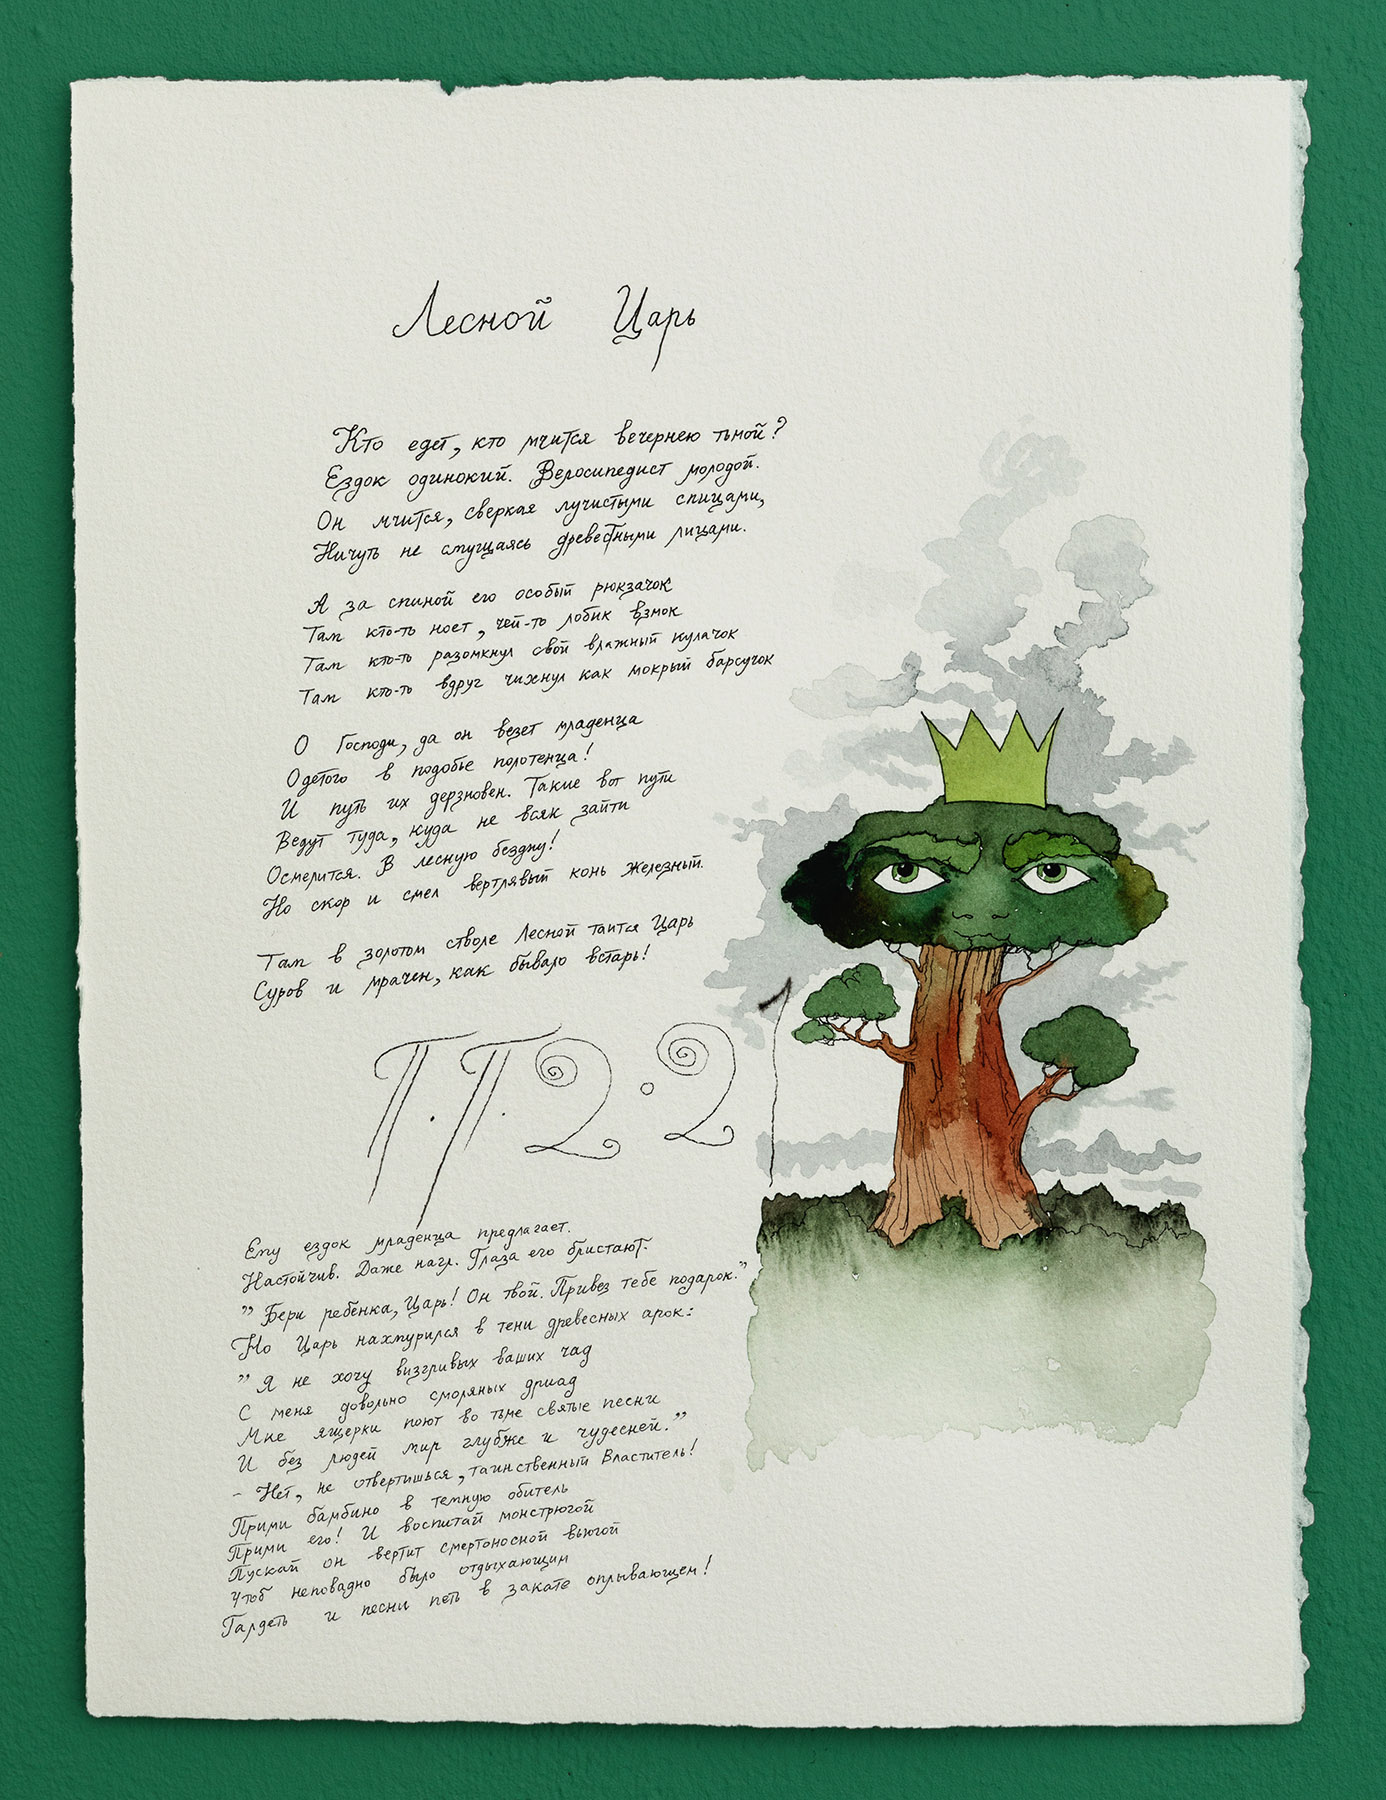 Лесной Царь
Кто едет, кто мчится вечернею тьмой?
Ездок одинокий. Велосипедист молодой.
Он мчится, сверкая лучистыми спицами,
Ничуть не смущаясь древесными лицами.
А за спиной его особый рюкзачок
Там кто-то ноет, чей-то лобик взмок
Там кто-то разомкнул свой влажный кулачок
Там кто-то вдруг чихнул как мокрый барсучок
О Господи, да он везет младенца
Одетого в подобье полотенца!
И путь их дерзновен. Такие вот пути
Ведут туда, куда не всяк зайти
Осмелится. В лесную бездну!
Но скор и смел вертлявый конь железный.
Там в золотом стволе Лесной таится Царь
Суров и мрачен, как бывало встарь!
П.П.2•21
Ему ездок младенца предлагает.
Настойчив. Даже нагл. Глаза его блистают.
"Бери ребенка, Царь! Он твой. Привез тебе подарок."
Но Царь нахмурился в тени древесных арок:
"Я не хочу визгливых ваших чад
С меня довольно смоляных дриад
Мне ящерки поют во тьме святые песни
И без людей мир глубже и чудесней."
- Нет, не отвертишься, таинственный Властитель!
Прими бамбино в темную обитель
Прими его! И воспитай монстрюгой
Пускай он вертит смертоносной вьюгой
Чтоб неповадно было отдыхающим
Галдеть и песни петь в закате оплывающем!